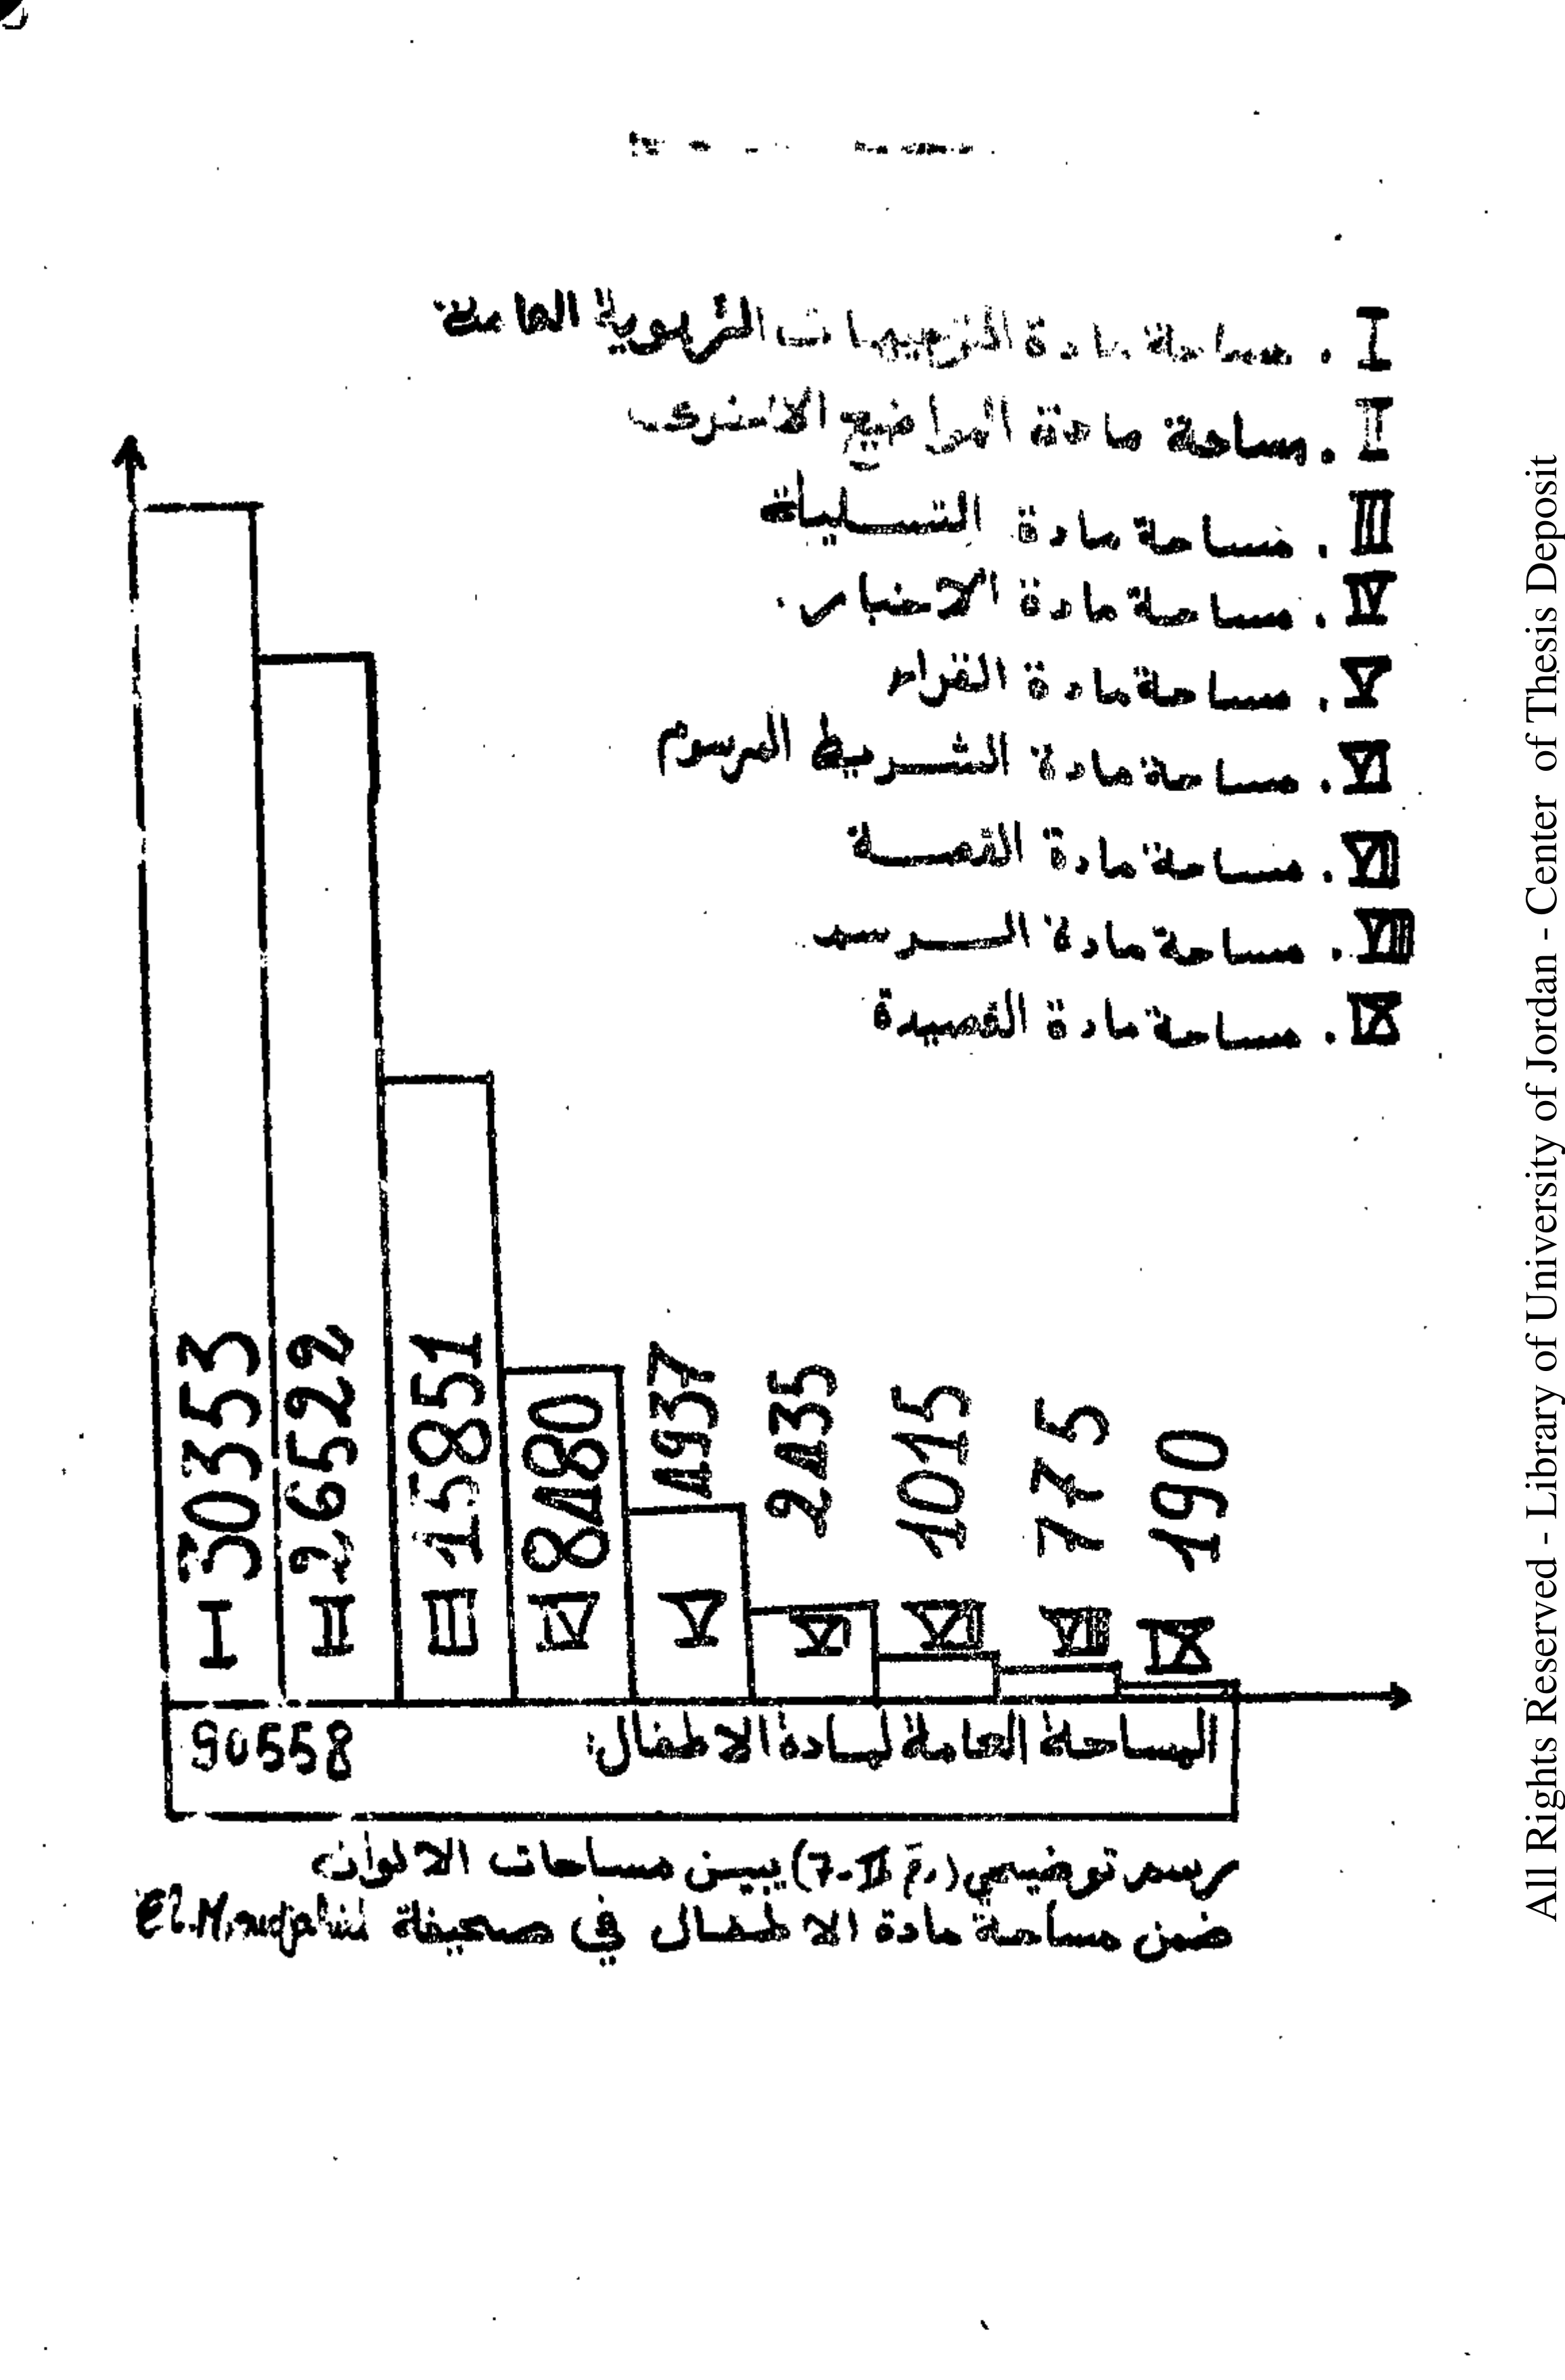 I . مساحة مادة التوجيهات التربوية العامة
II . مساحة مادة المواضيع الاخرى
III . مساحة مادة التسلية
IV . مساحة مادة الاخبار.
V . مساحة مادة القراء
VI . مساحة مادة الشريط المرسوم
VII . مساحة مادة القصة
VIII . مساحة مادة الرسم
IX . مساحة مادة القصيدة
I 30353
II 26522
III 15851
IV 8480
V 4937
VI 2435
VII 1015
VIII 775
IX 190
المساحة العامة لمادة الاطفال: 90558
رسم توضيحي (رقم II-7) يبين مساحات الالوان
ضمن مساحة مادة الاطفال في صحيفة El.Moudjahid
All Rights Reserved - Library of University of Jordan - Center of Thesis Deposit